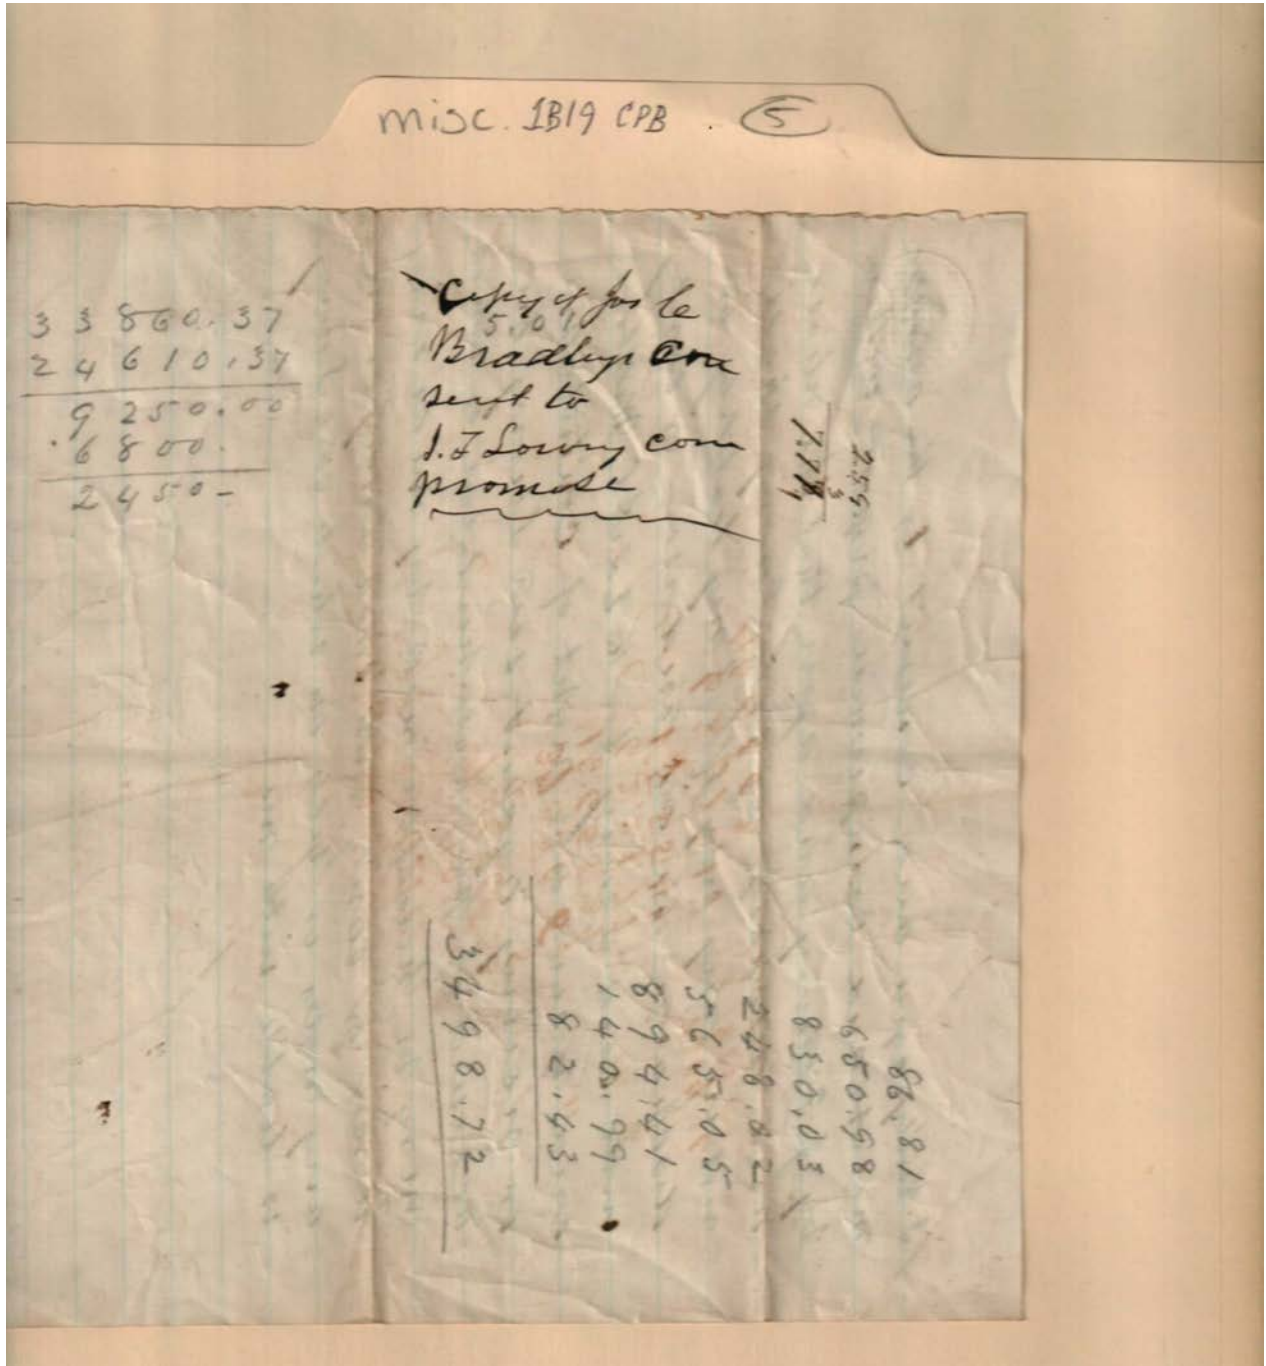 misc. 1B19 CPB . 5
33860.37
24610.37
9250.00
6800.
2450-
Copy of Jos C
5.01
Bradleys Con
sent to
J. F Lowry com
promise
2.59
86.81
650.58
830.03
248.82
565.05
894.41
140.99
82.43
3498.72